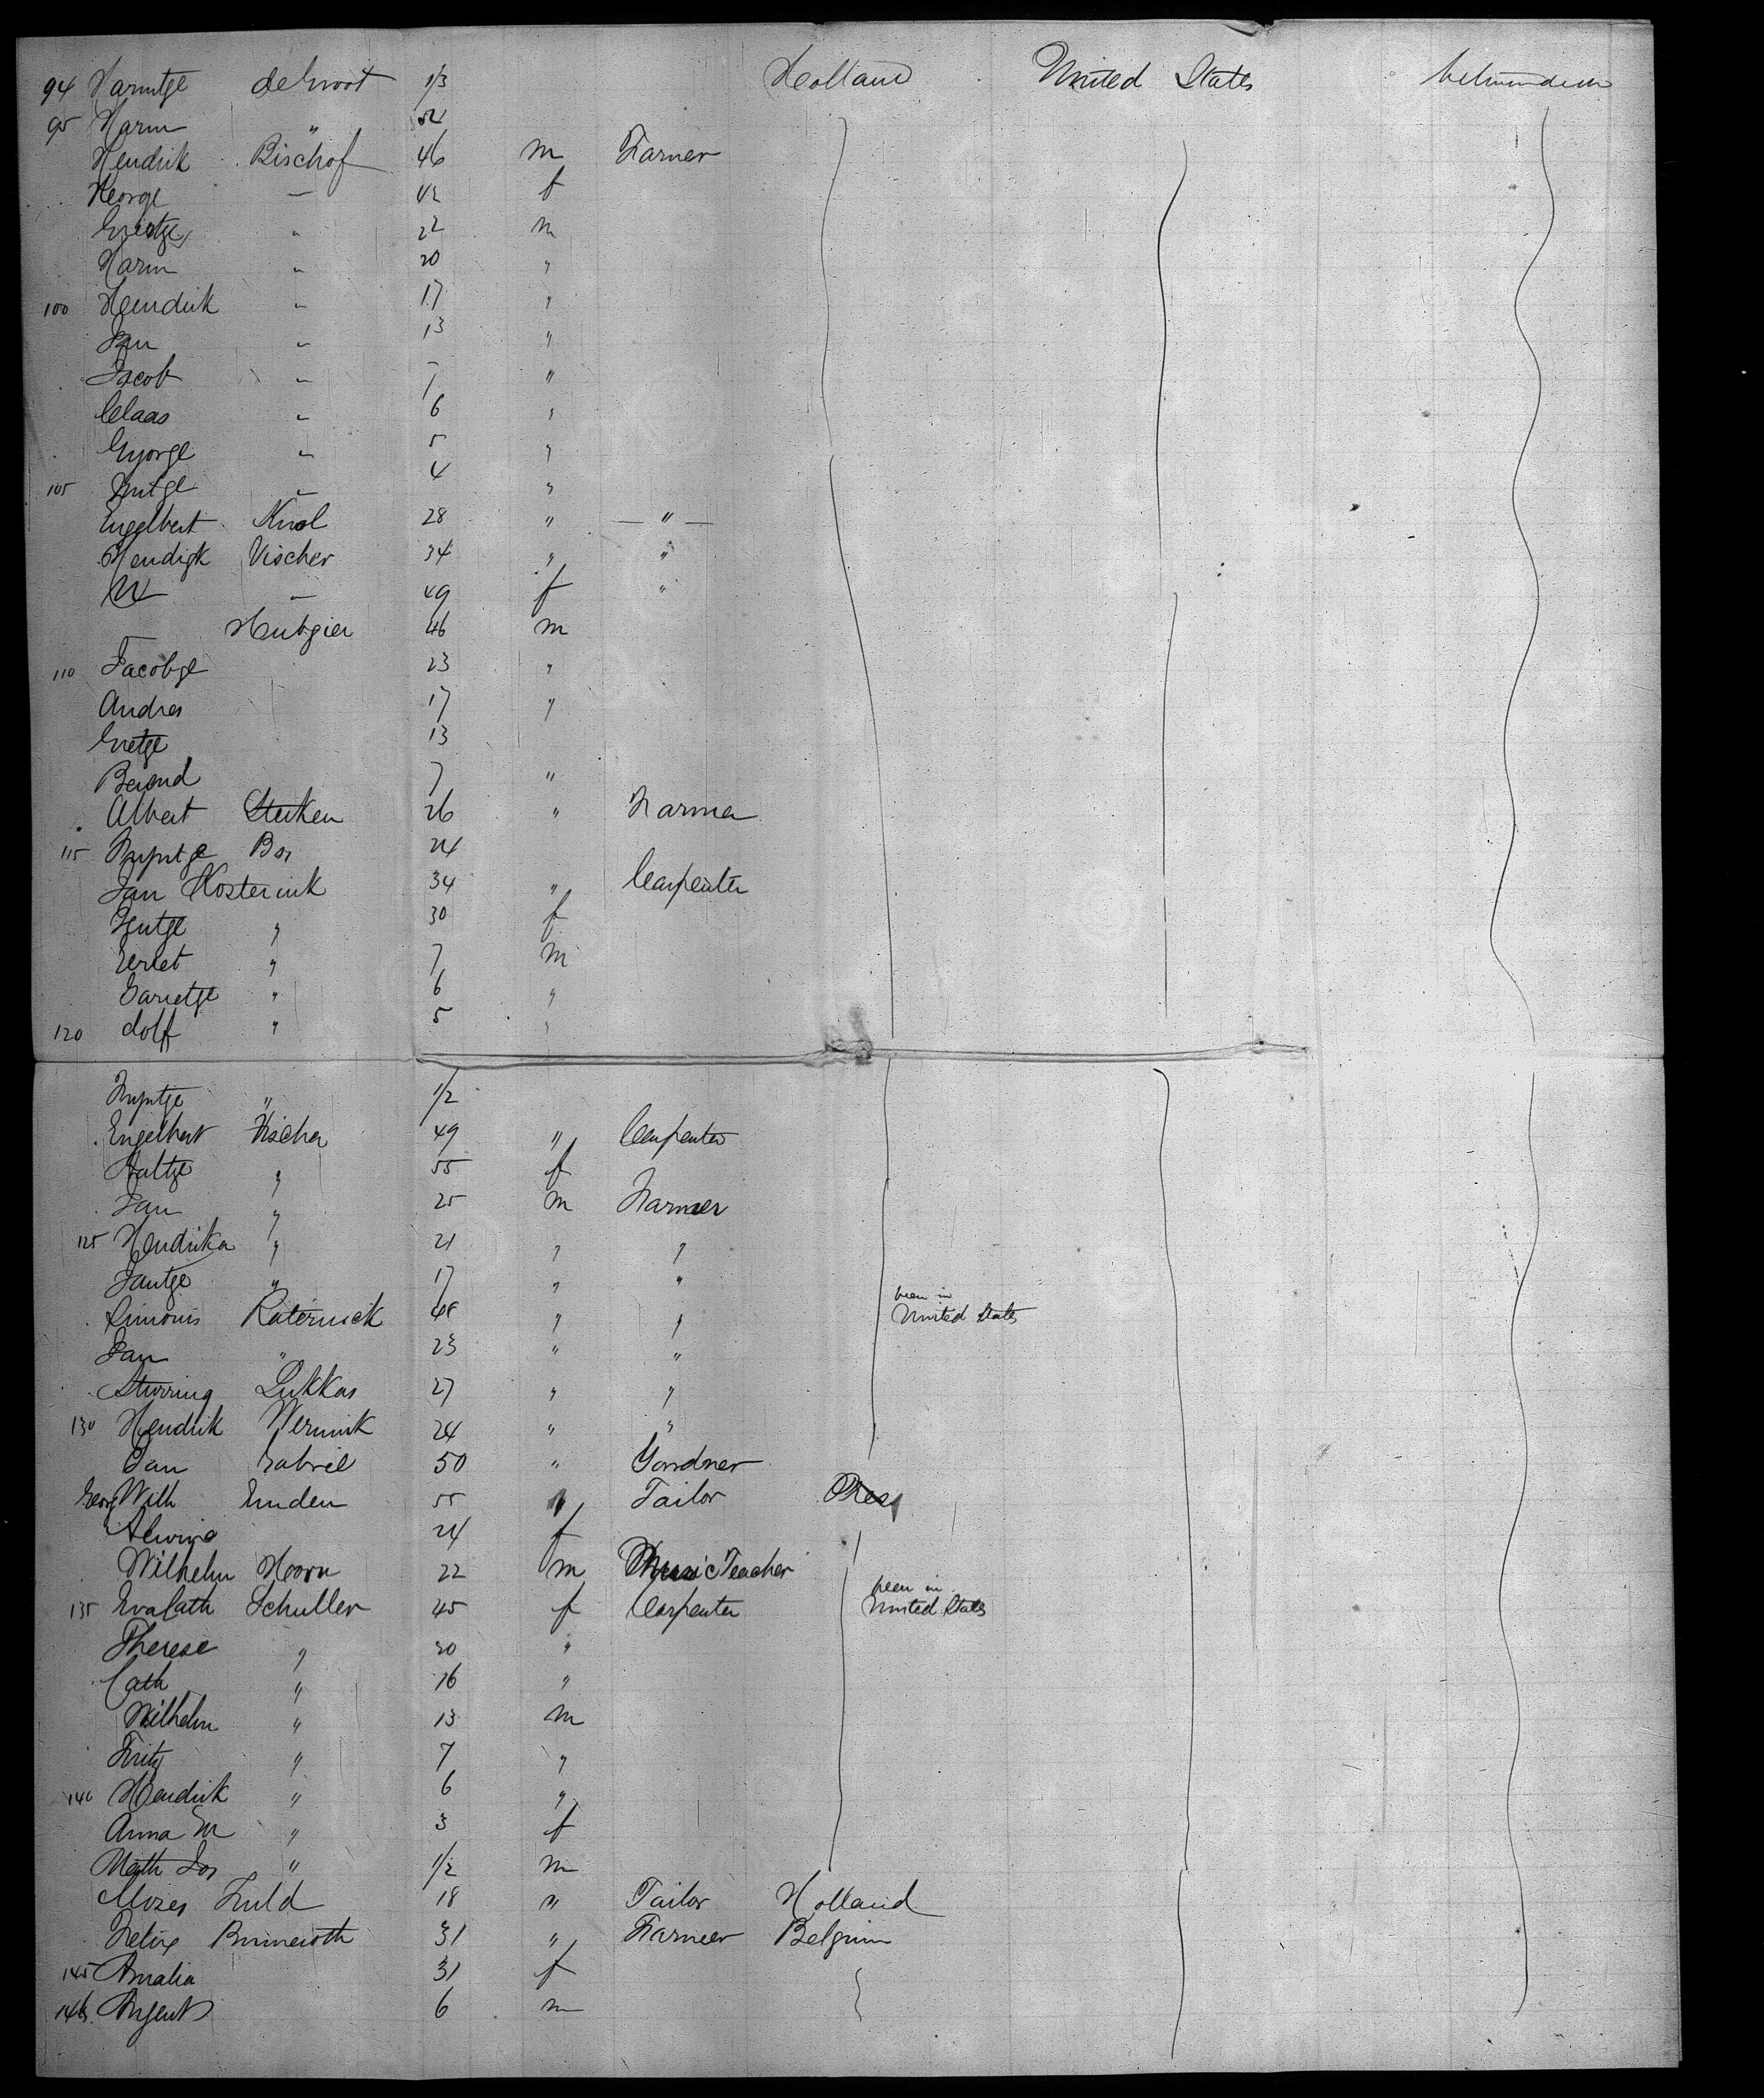 94 Harmtge deGroot 1/3 Holland United States
95 Harm "
Hendrik Bischof 46 m Farmer
George — 42 f
Grietge " 22 m
Harm " 20 "
100 Hendrik " 17 "
Jan " 13 "
Jacob " 7 "
Claas " 6 "
Gyorge " 5 "
105 " 4 "
Engelbert Knol 28 " — " —
Hendrik Vischer 34 " "
— 49 f "
46 m
110 Jacobge 23 "
Andres 17 "
Gretge 13
Berend 7 "
Albert Steiken 26 " Farmer
115 24
Jan Kosterink 34 " Carpenter
30 f
7 m
" 6 "
120 dolf " 5 "
" 1/2
Engelbert Vischer 49 " Carpenter
Aaltge " 55 f
Jan " 25 m Farmer
125 Hendrika " 21 " "
Jantge " 17 " "
been in
Simons Raternick 48 " " United States
Jan " 23 " "
Sturring Lukkas 27 " "
130 Hendrik Wernink 24 " "
Jan Gabriel 50 " Gardner
Georg Wilh Emden 55 " Tailor
Alwine 24 f
Wilhelm Hoorn 22 m Music Teacher
been in
135 Eva Cath Schuller 45 f Carpenter United States
Therese " 20 "
Cath " 16 "
Wilhelm " 13 m
Fritz " 7 "
140 Hendrik " 6 "
Anna M " 3 f
Math Jos " 1/2 m
Moses Fuld 18 " Tailor Holland
Felix 31 " Farmer Belgium
145 Amalia 31 f
146. 6 m